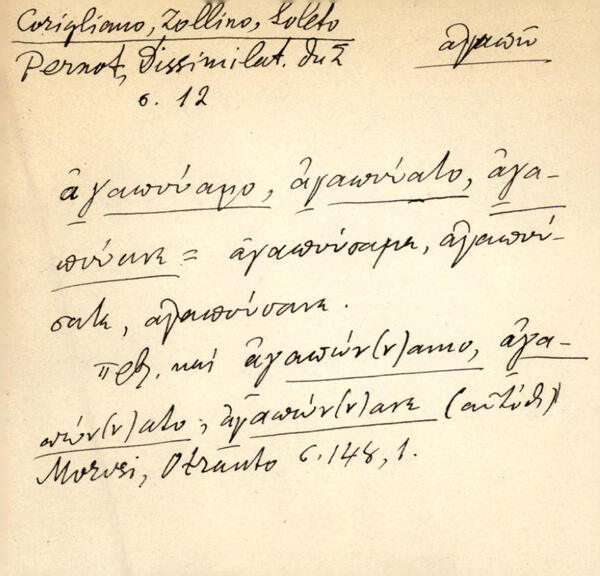 Corigliano, Zollino, Soleto
ἀγαπῶ
Pernot, Dissimilat. du Σ
σ. 12
ἀγαπούαμο, ἀγαπούατο, ἀγα-
πούανε = ἀγαπούσαμε, ἀγαπού-
σατε, ἀγαπούσανε.
πρβ. καὶ ἀγαπών(ν)αμο, ἀγα-
πών(ν)ατο, ἀγαπών(ν)ανε (αὐτόθι)
Morosi, Otranto σ. 148, 1.